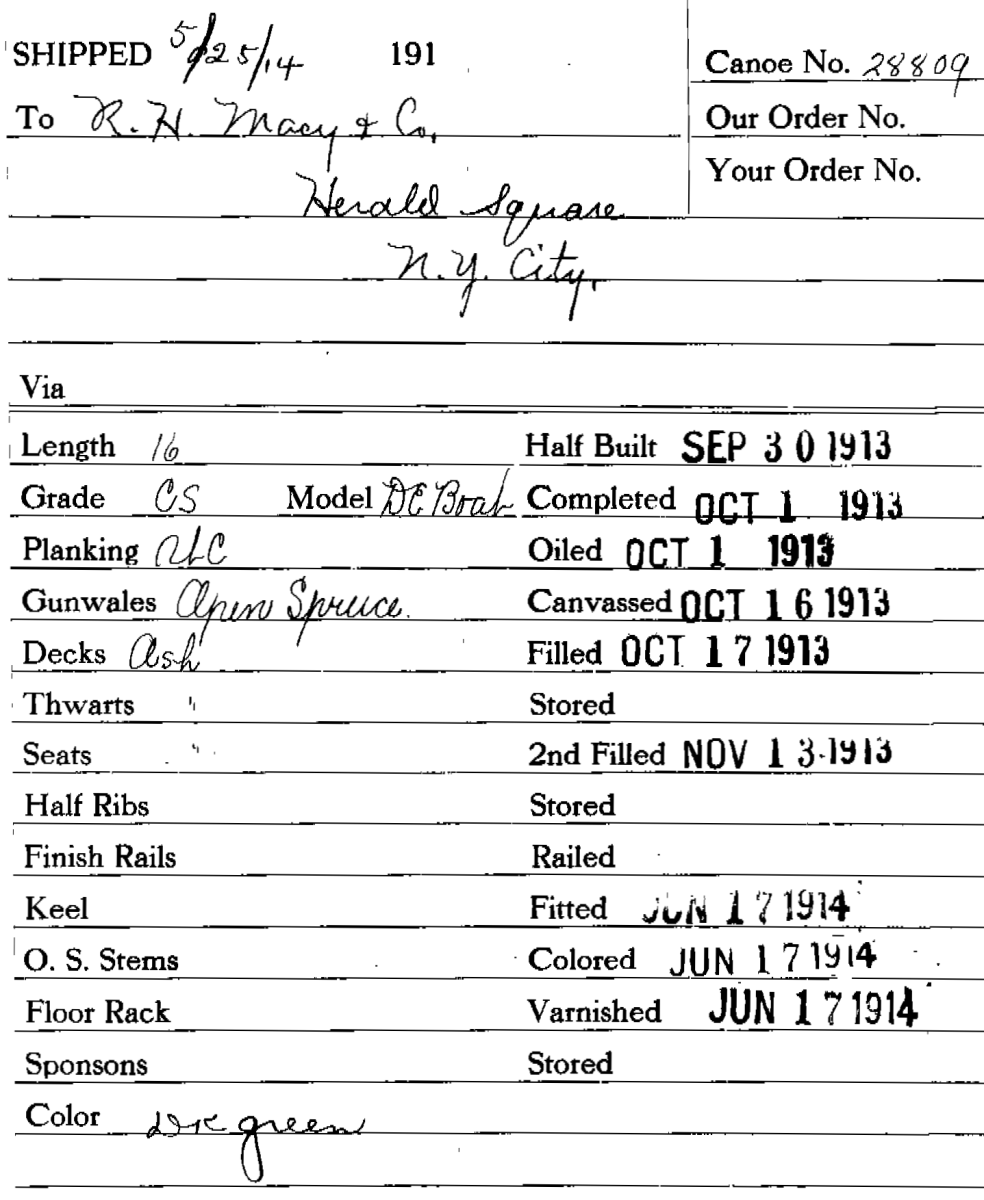 SHIPPED 5/25/14 191
Canoe No. 28809
To R. H. Macy & Co.
Our Order No.
Herald Square
Your Order No.
N. Y. City.
Via
Length 16 Half Built SEP 30 1913
Grade CS Model DE Boat Completed OCT 1 1913
Planking RLC Oiled OCT 1 1913
Gunwales Open Spruce. Canvassed OCT 16 1913
Decks Ash Filled OCT 17 1913
Thwarts " Stored
Seats " 2nd Filled NOV 13 1913
Half Ribs Stored
Finish Rails Railed
Keel Fitted JUN 17 1914
O. S. Stems Colored JUN 17 1914
Floor Rack Varnished JUN 17 1914
Sponsons Stored
Color Dk green